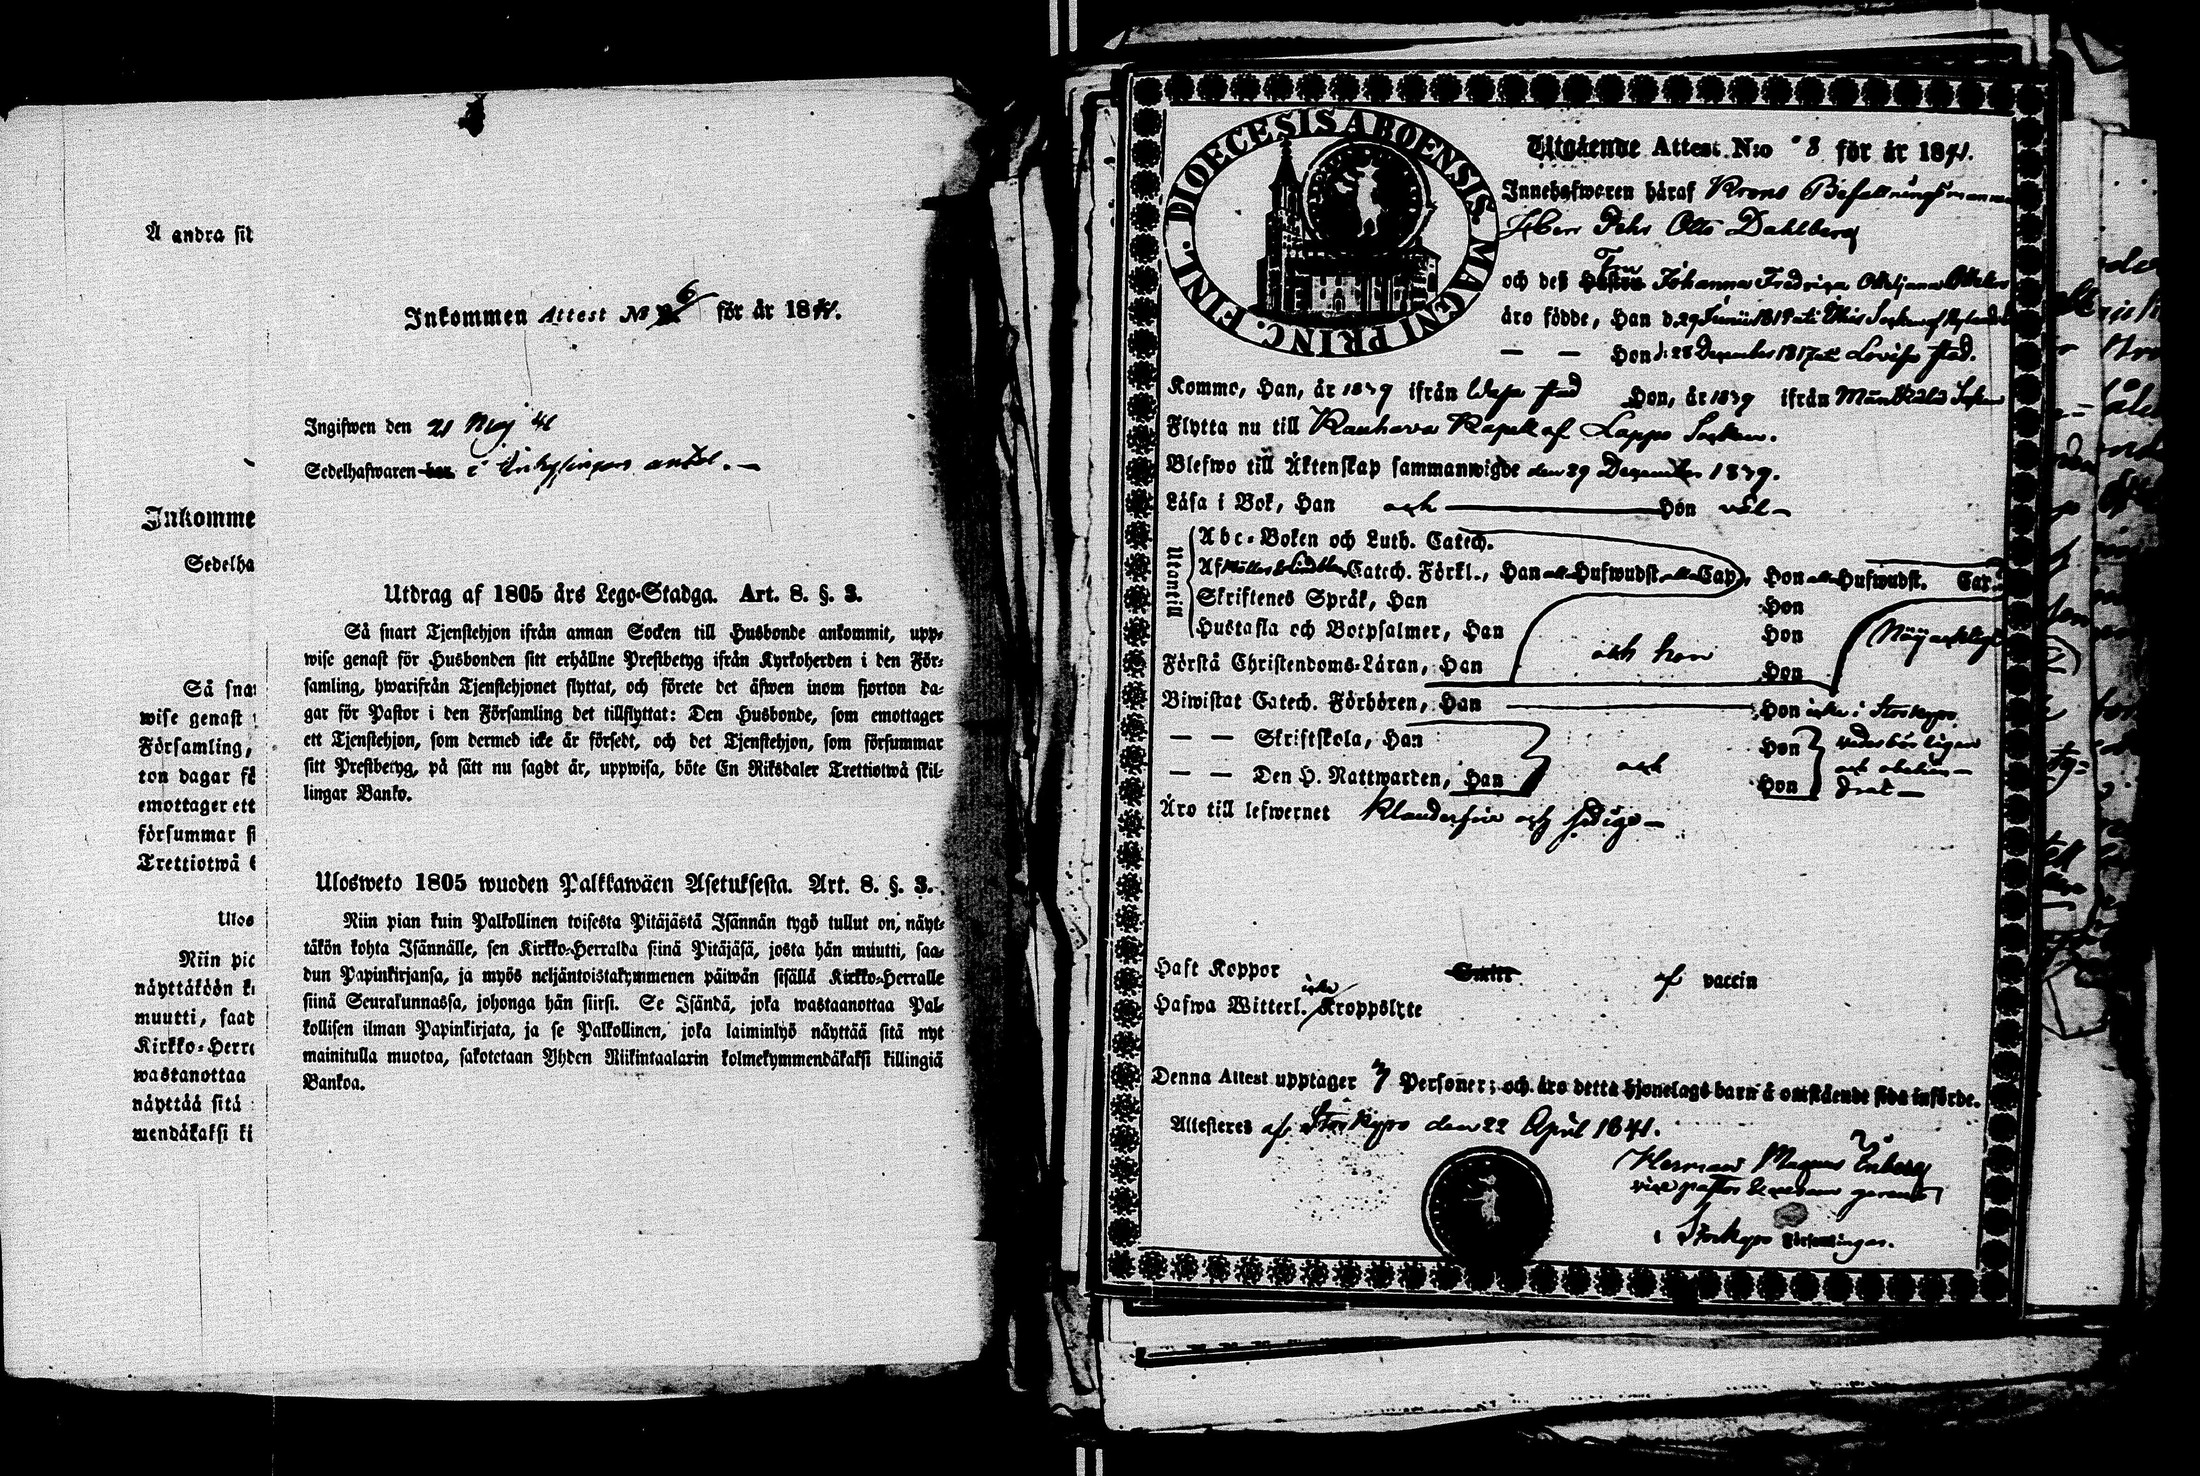 Å andra sit
Inkomme
Sedelha
Så sna
wise genast
Församling,
ton dagar fö
emottager ett
försummar si
Trettiotwå
Ulos
Niin pie
näyttäköön k
muutti, saad
Kirkko-Herre
wastanottaa
näyttää sitä
mendäkaksi ki
Inkommen Attest No 6 för år 1841.
Ingifwen den 21 Maj 41
Sedelhafwaren har i
Utdrag af 1805 års Lego-Stadga. Art. 8. §. 3.
Så snart Tjenstehjon ifrån annan Socken till Husbonde ankommit, upp-
wise genast för Husbonden sitt erhållne Prestbetyg ifrån Kyrkoherden i den För-
samling, hwarifrån Tjenstehjonet flyttat, och förete det äfwen inom fjorton da-
gar för Pastor i den Församling det tillflyttat: Den Husbonde, som emottager
ett Tjenstehjon, som dermed icke är försedt, och det Tjenstehjon, som försummar
sitt Prestbetyg, på sätt nu sagdt är, uppwisa, böte En Riksdaler Trettiotwå skil-
lingar Banko.
Ulosweto 1805 wuoden Palkkawäen Asetuksesta. Art. 8. §. 3.
Niin pian kuin Palkollinen toisesta Pitäjästä Isännän tygö tullut on, näyt-
täkön kohta Isännälle, sen Kirkko-Herralda siinä Pitäjäsä, josta hän muutti, saa-
dun Papinkirjansa, ja myös neljäntoistakymmenen päiwän sisällä Kirkko-Herralle
siinä Seurakunnassa, johonga hän siirsi. Se Isändä, joka wastaanottaa Pal-
kollisen ilman Papinkirjata, ja se Palkollinen, joka laiminlyö näyttää sitä nyt
mainitulla muotoa, sakotetaan Yhden Riikintaalarin kolmekymmendäkaksi killingiä
Bankoa.
DIOECESIS ABOENSIS. MAGNI PRINC. FINL.
Utgående Attest N:o 8 för år 1841.
Innehafwaren häraf Krons Befallningsmannen
Herr Pehr Otto Dahlberg
och deß Hustru Fru Johanna Fredrica
äro födde, Han d. 29 Junii 181
— — Hon d. 28 December 1817 uti Lovisa stad.
Komne, Han, år 1839 ifrån Wasa stad Hon, år 1839 ifrån
Flytta nu till Kauhava Kapell af Lappo Socken.
Blefwo till Äktenskap sammanwigde den 29 December 1839.
Läsa i Bok, Han och Hon väl
Utantill
Abc-Boken och Luth. Catech.
Af Catech. Förkl., Han alla Hufwudst. alla Cap. Hon alla Hufwudst. Cap.
Skriftenes Språk, Han Hon
Hustafla och Botpsalmer, Han Hon
Förstå Christendoms-Läran, Han och hon Hon
Biwistat Catech. Förhören, Han Hon icke i Storkyro
— — Skriftskola, Han Hon vederbörligen
— — Den H. Nattwarden, Han och Hon
Äro till lefwernet Klanderfrie och sedige
Haft Koppor Smitt. af vaccin
Hafwa Witterl. icke Kroppslyte
Denna Attest upptager Personer; och äro detta hjonelags barn å omstående sida införde.
Attesteres af Storkyro den 22 April 1841.
Herman Magnus Enberg
vice pastor
i Storkyro Församlingar.